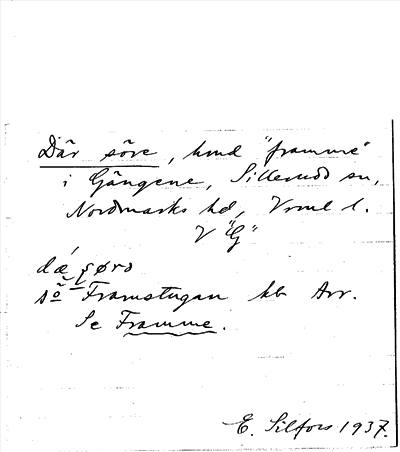 Där söre, hmd "framme"
i Gängene, Sillerudd sn,
Nordmarks hd, Vrml l.
V "G"
dǽ ʂørə
Framstugan hb Arr.
Se Framme.
E. Silfors 1937.